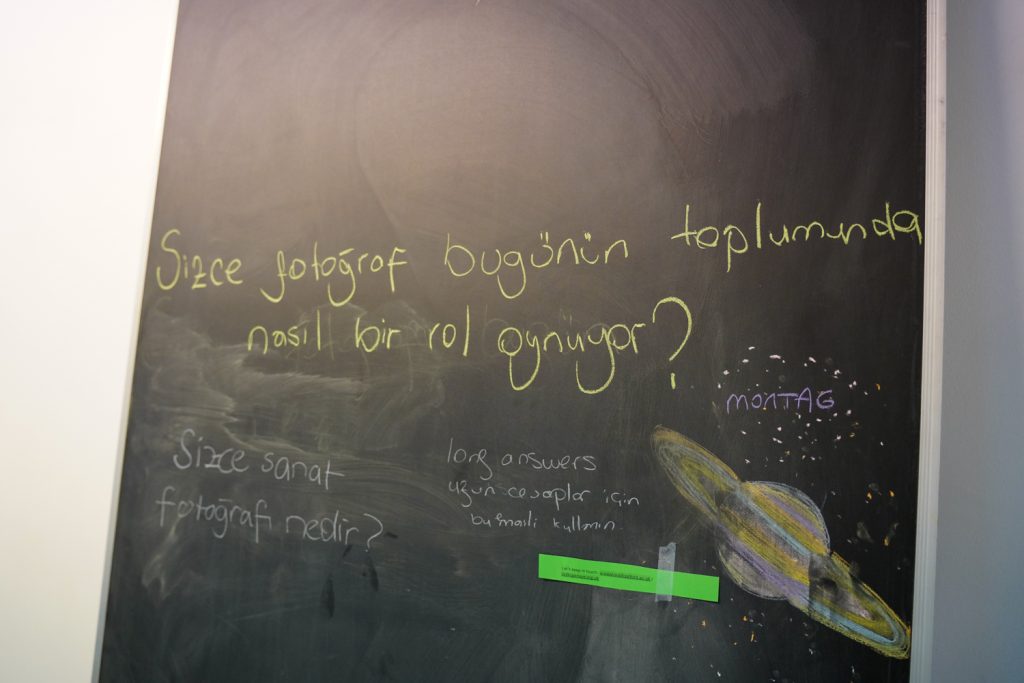 Sizce fotoğraf bugünün toplumunda
nasıl bir rol oynuyor?
MONTAG
Sizce sanat
fotoğrafı nedir?
long answers
uzun cevaplar için
bu maili kullanın.
Let's keep in touch: